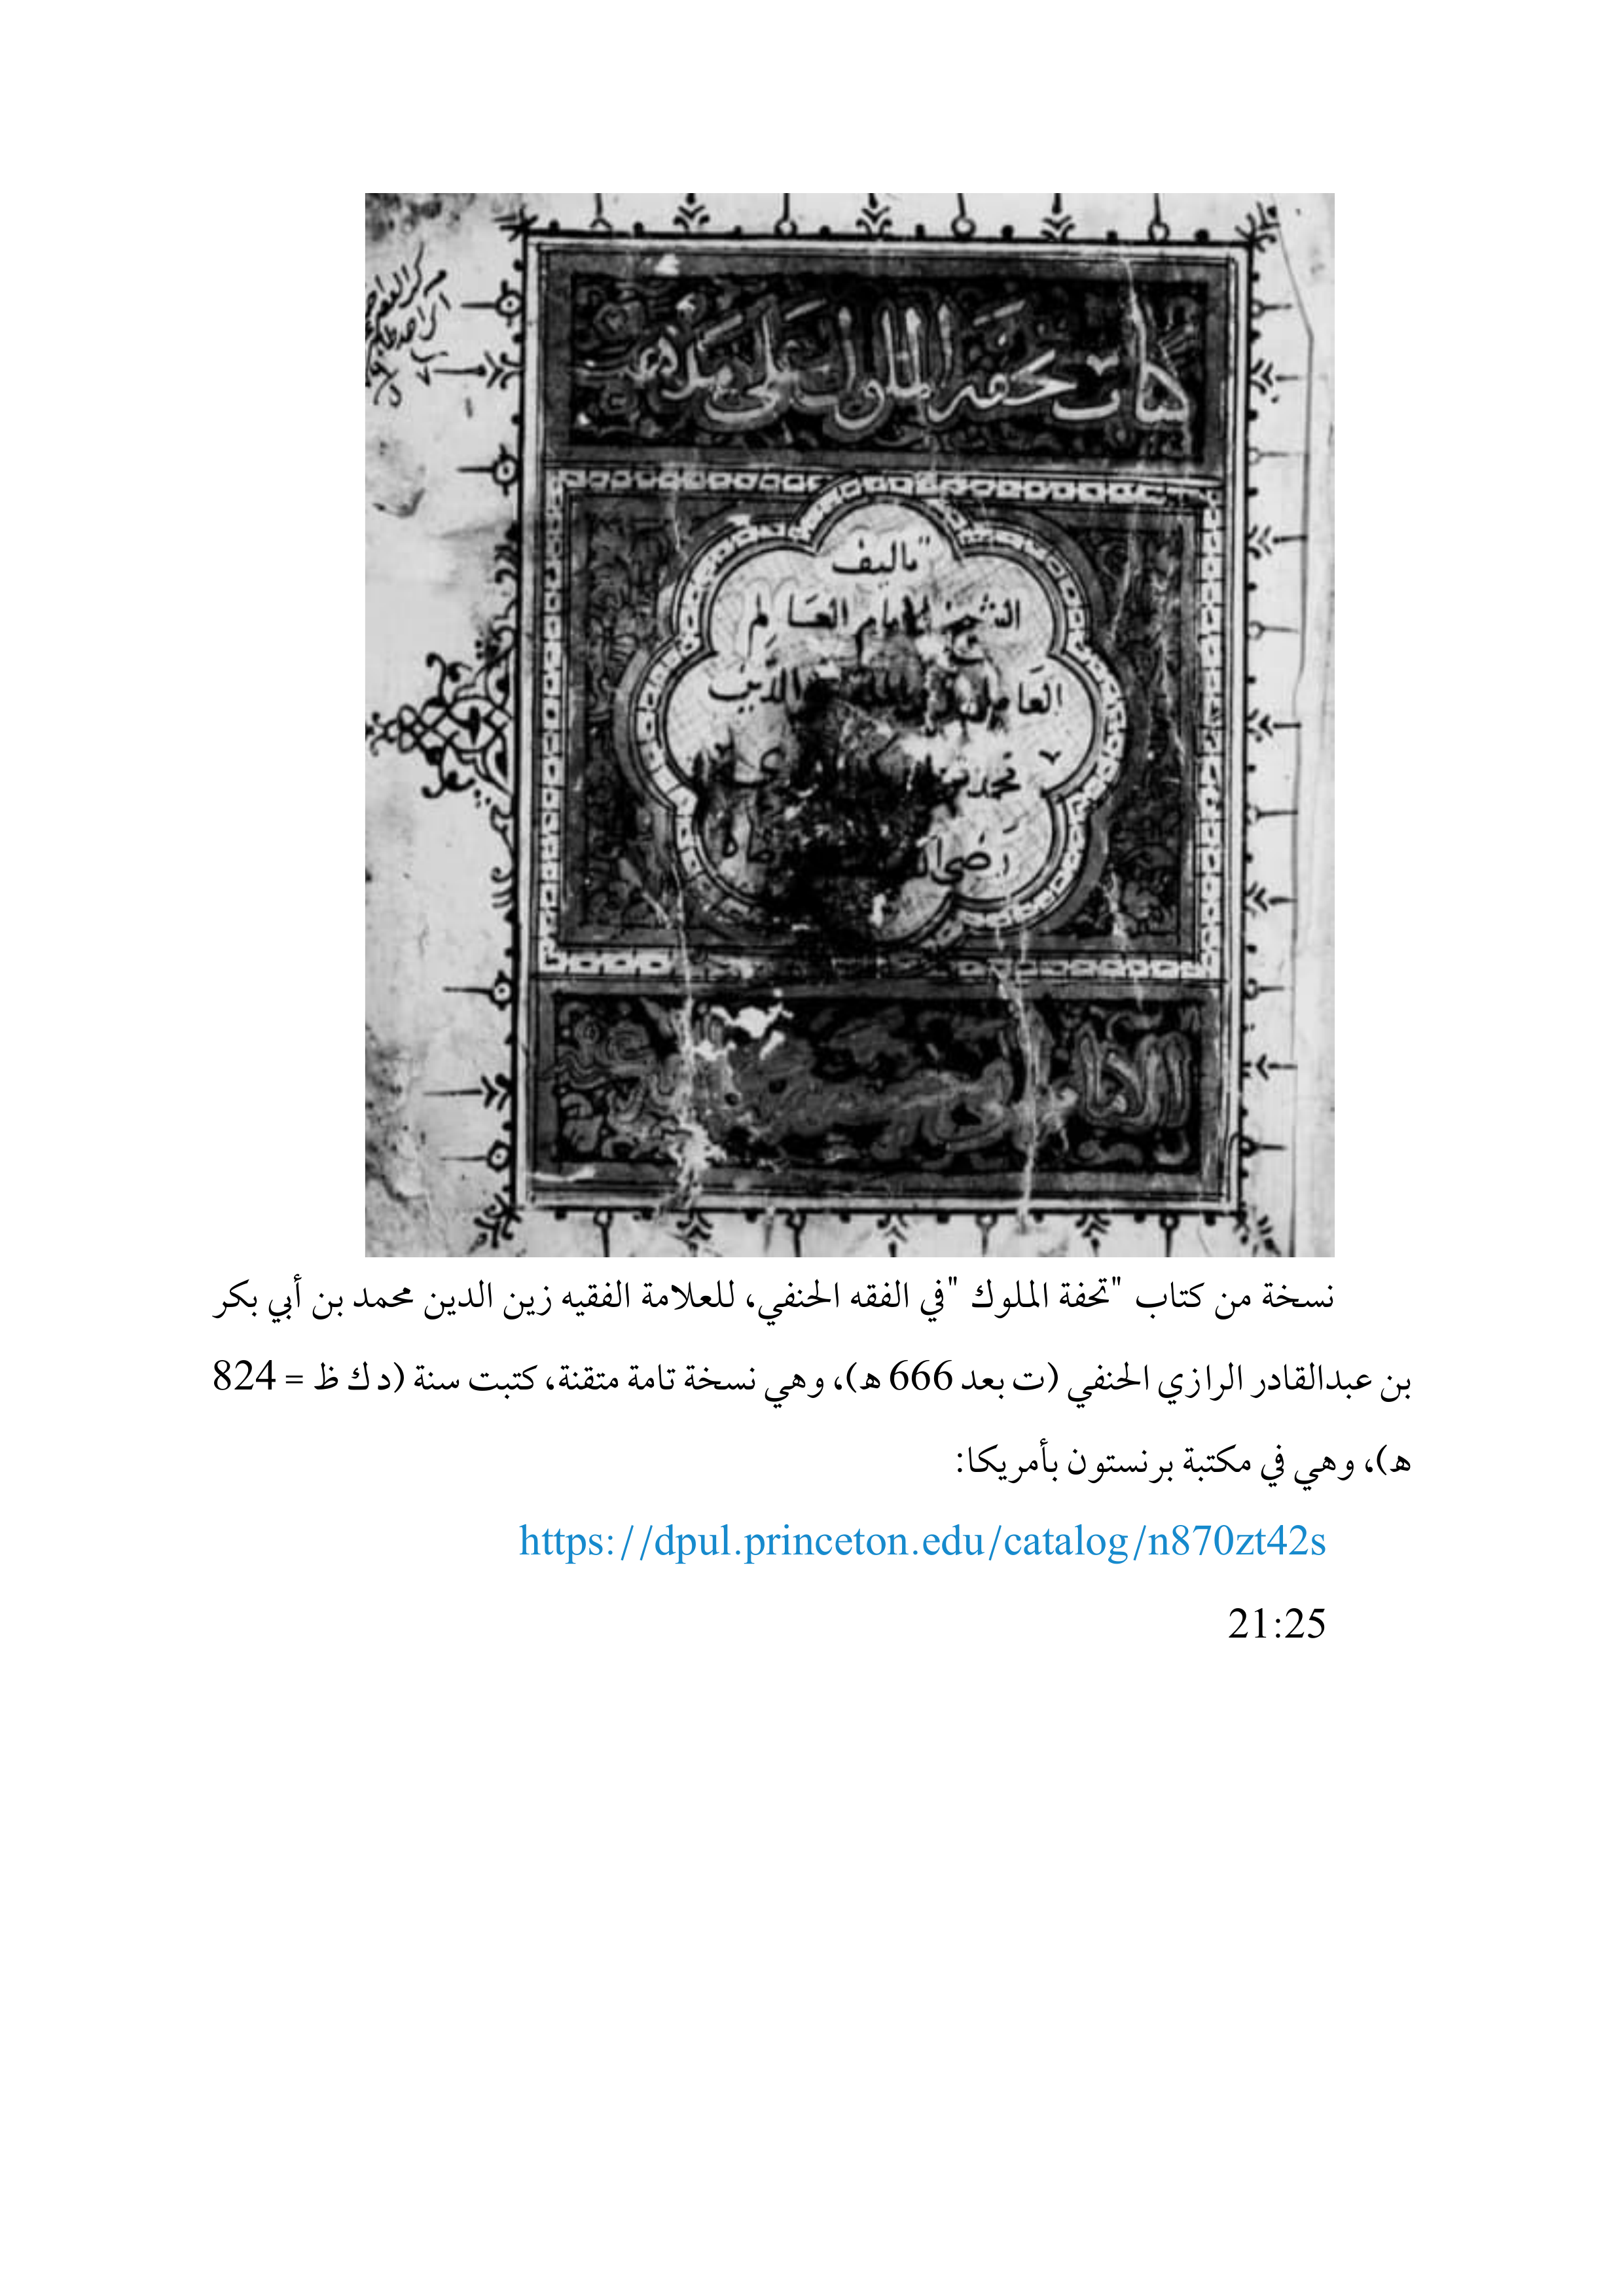 كتاب تحفة الملوك على مذهب
تاليف
الشيخ الامام العالم
العامل الدين
محمد بن
رضى الله
نسخة من كتاب "تحفة الملوك "في الفقه الحنفي، للعلامة الفقيه زين الدين محمد بن أبي بكر
بن عبدالقادر الرازي الحنفي (ت بعد 666 ه)، وهي نسخة تامة متقنة، كتبت سنة (د ك ظ = 824
ه)، وهي في مكتبة برنستون بأمريكا:
https://dpul.princeton.edu/catalog/n870zt42s
21:25